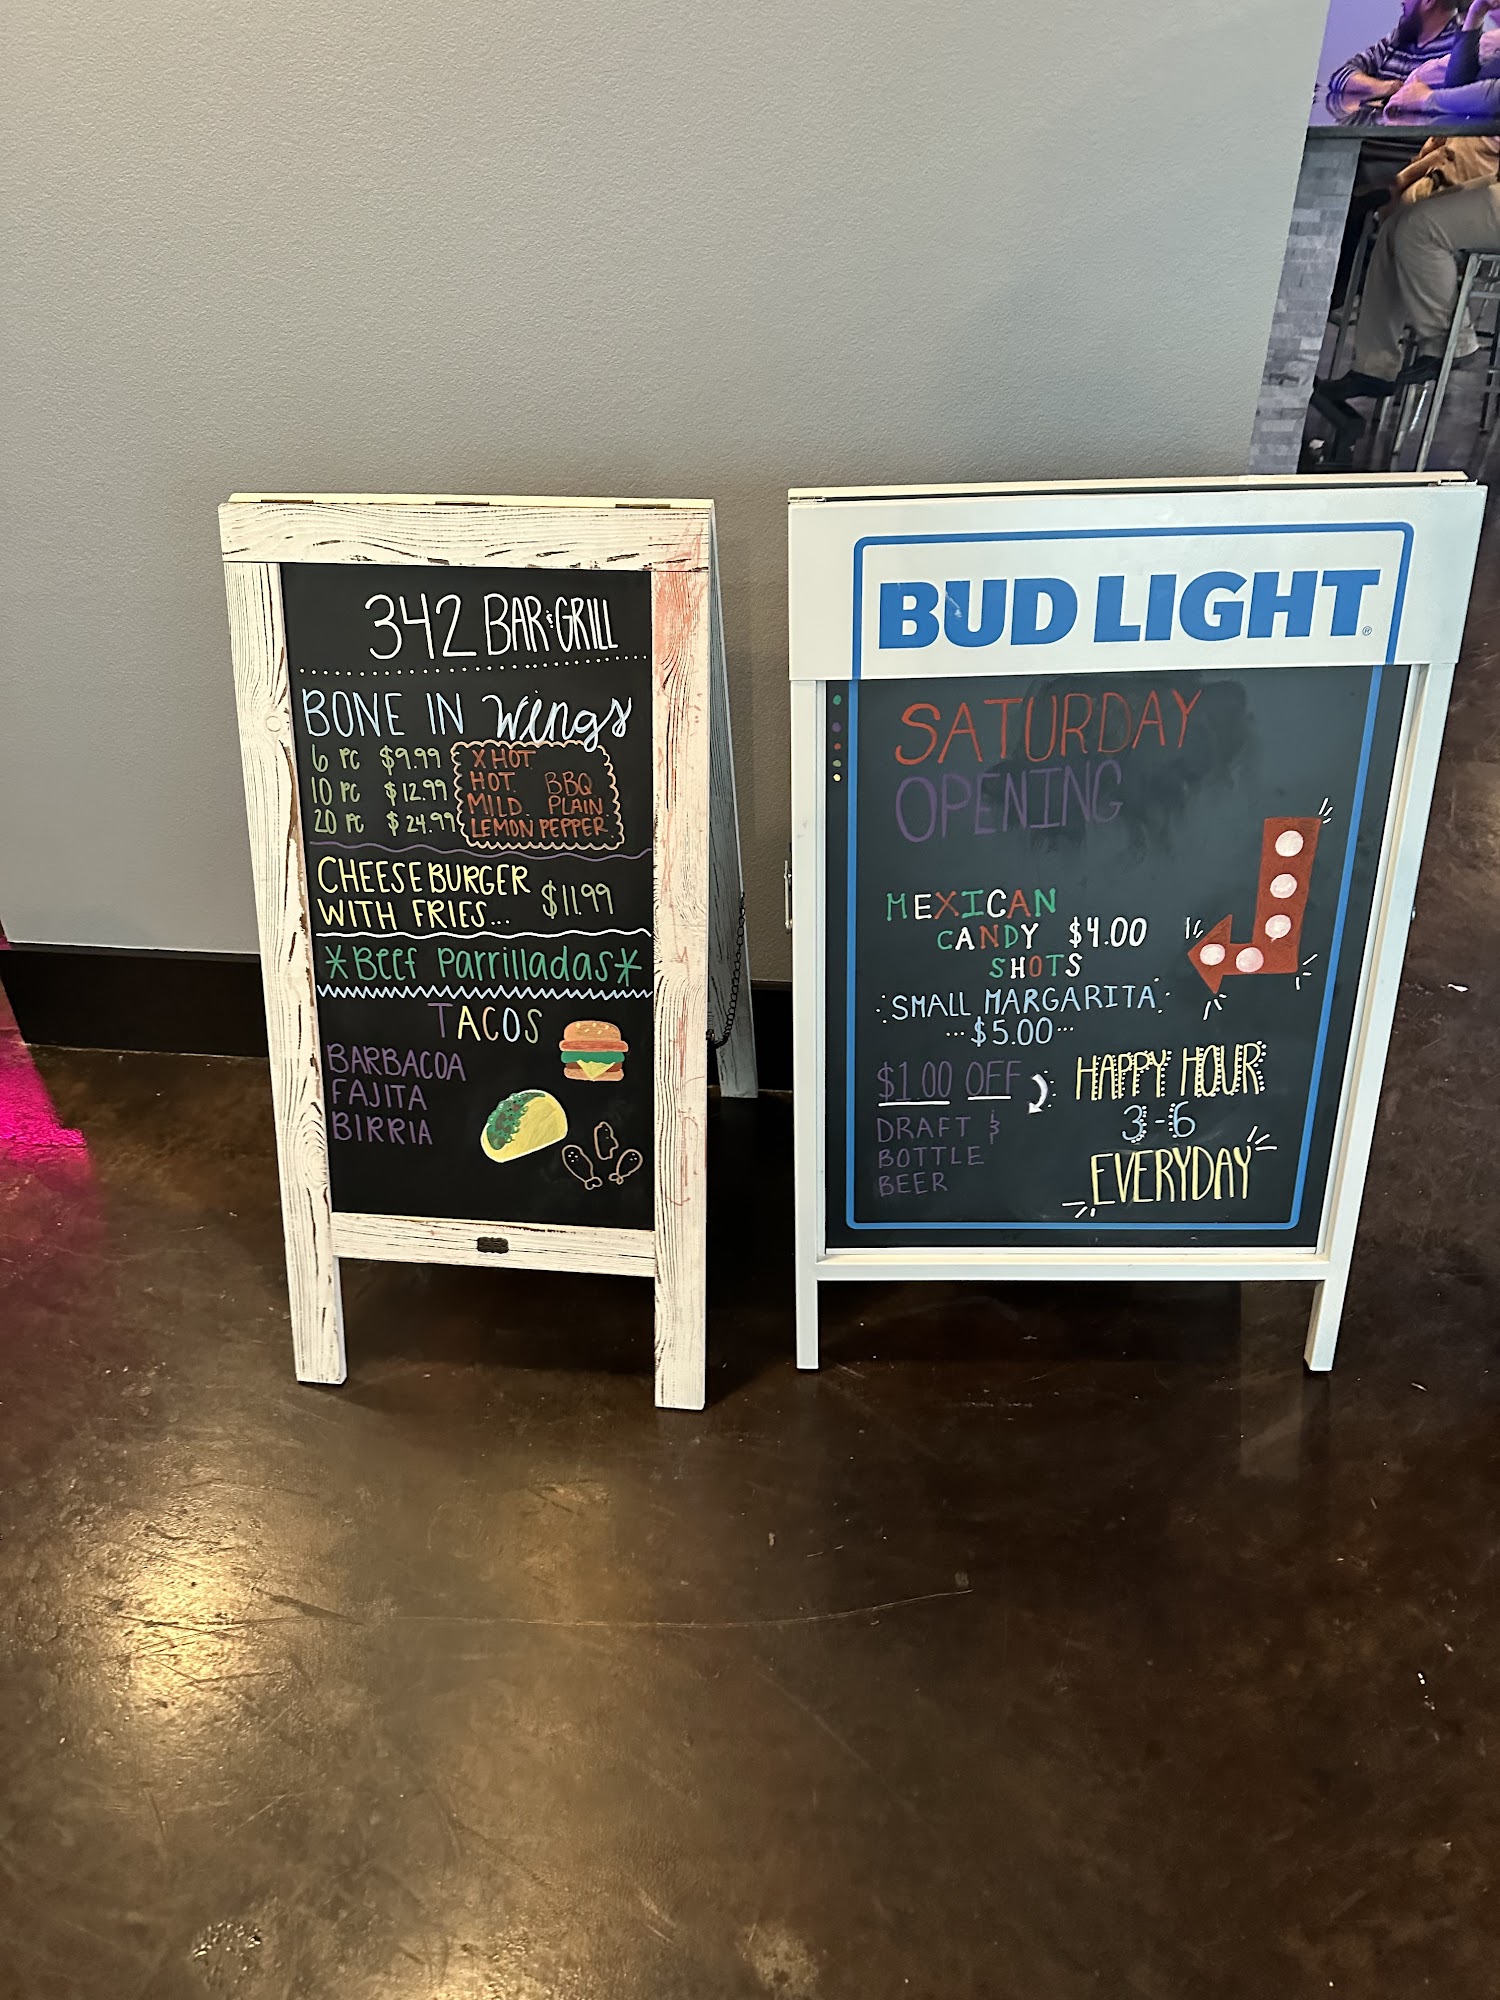 342 BAR & GRILL
BONE IN Wings
6 PC $9.99
10 PC $12.99
20 PC $24.99
X HOT
HOT BBQ
MILD PLAIN
LEMON PEPPER
CHEESEBURGER
WITH FRIES... $11.99
*Beef Parrilladas*
TACOS
BARBACOA
FAJITA
BIRRIA
BUD LIGHT®
SATURDAY
OPENING
MEXICAN
CANDY $4.00
SHOTS
SMALL MARGARITA
...$5.00...
$1.00 OFF
DRAFT &
BOTTLE
BEER
HAPPY HOUR
3-6
EVERYDAY